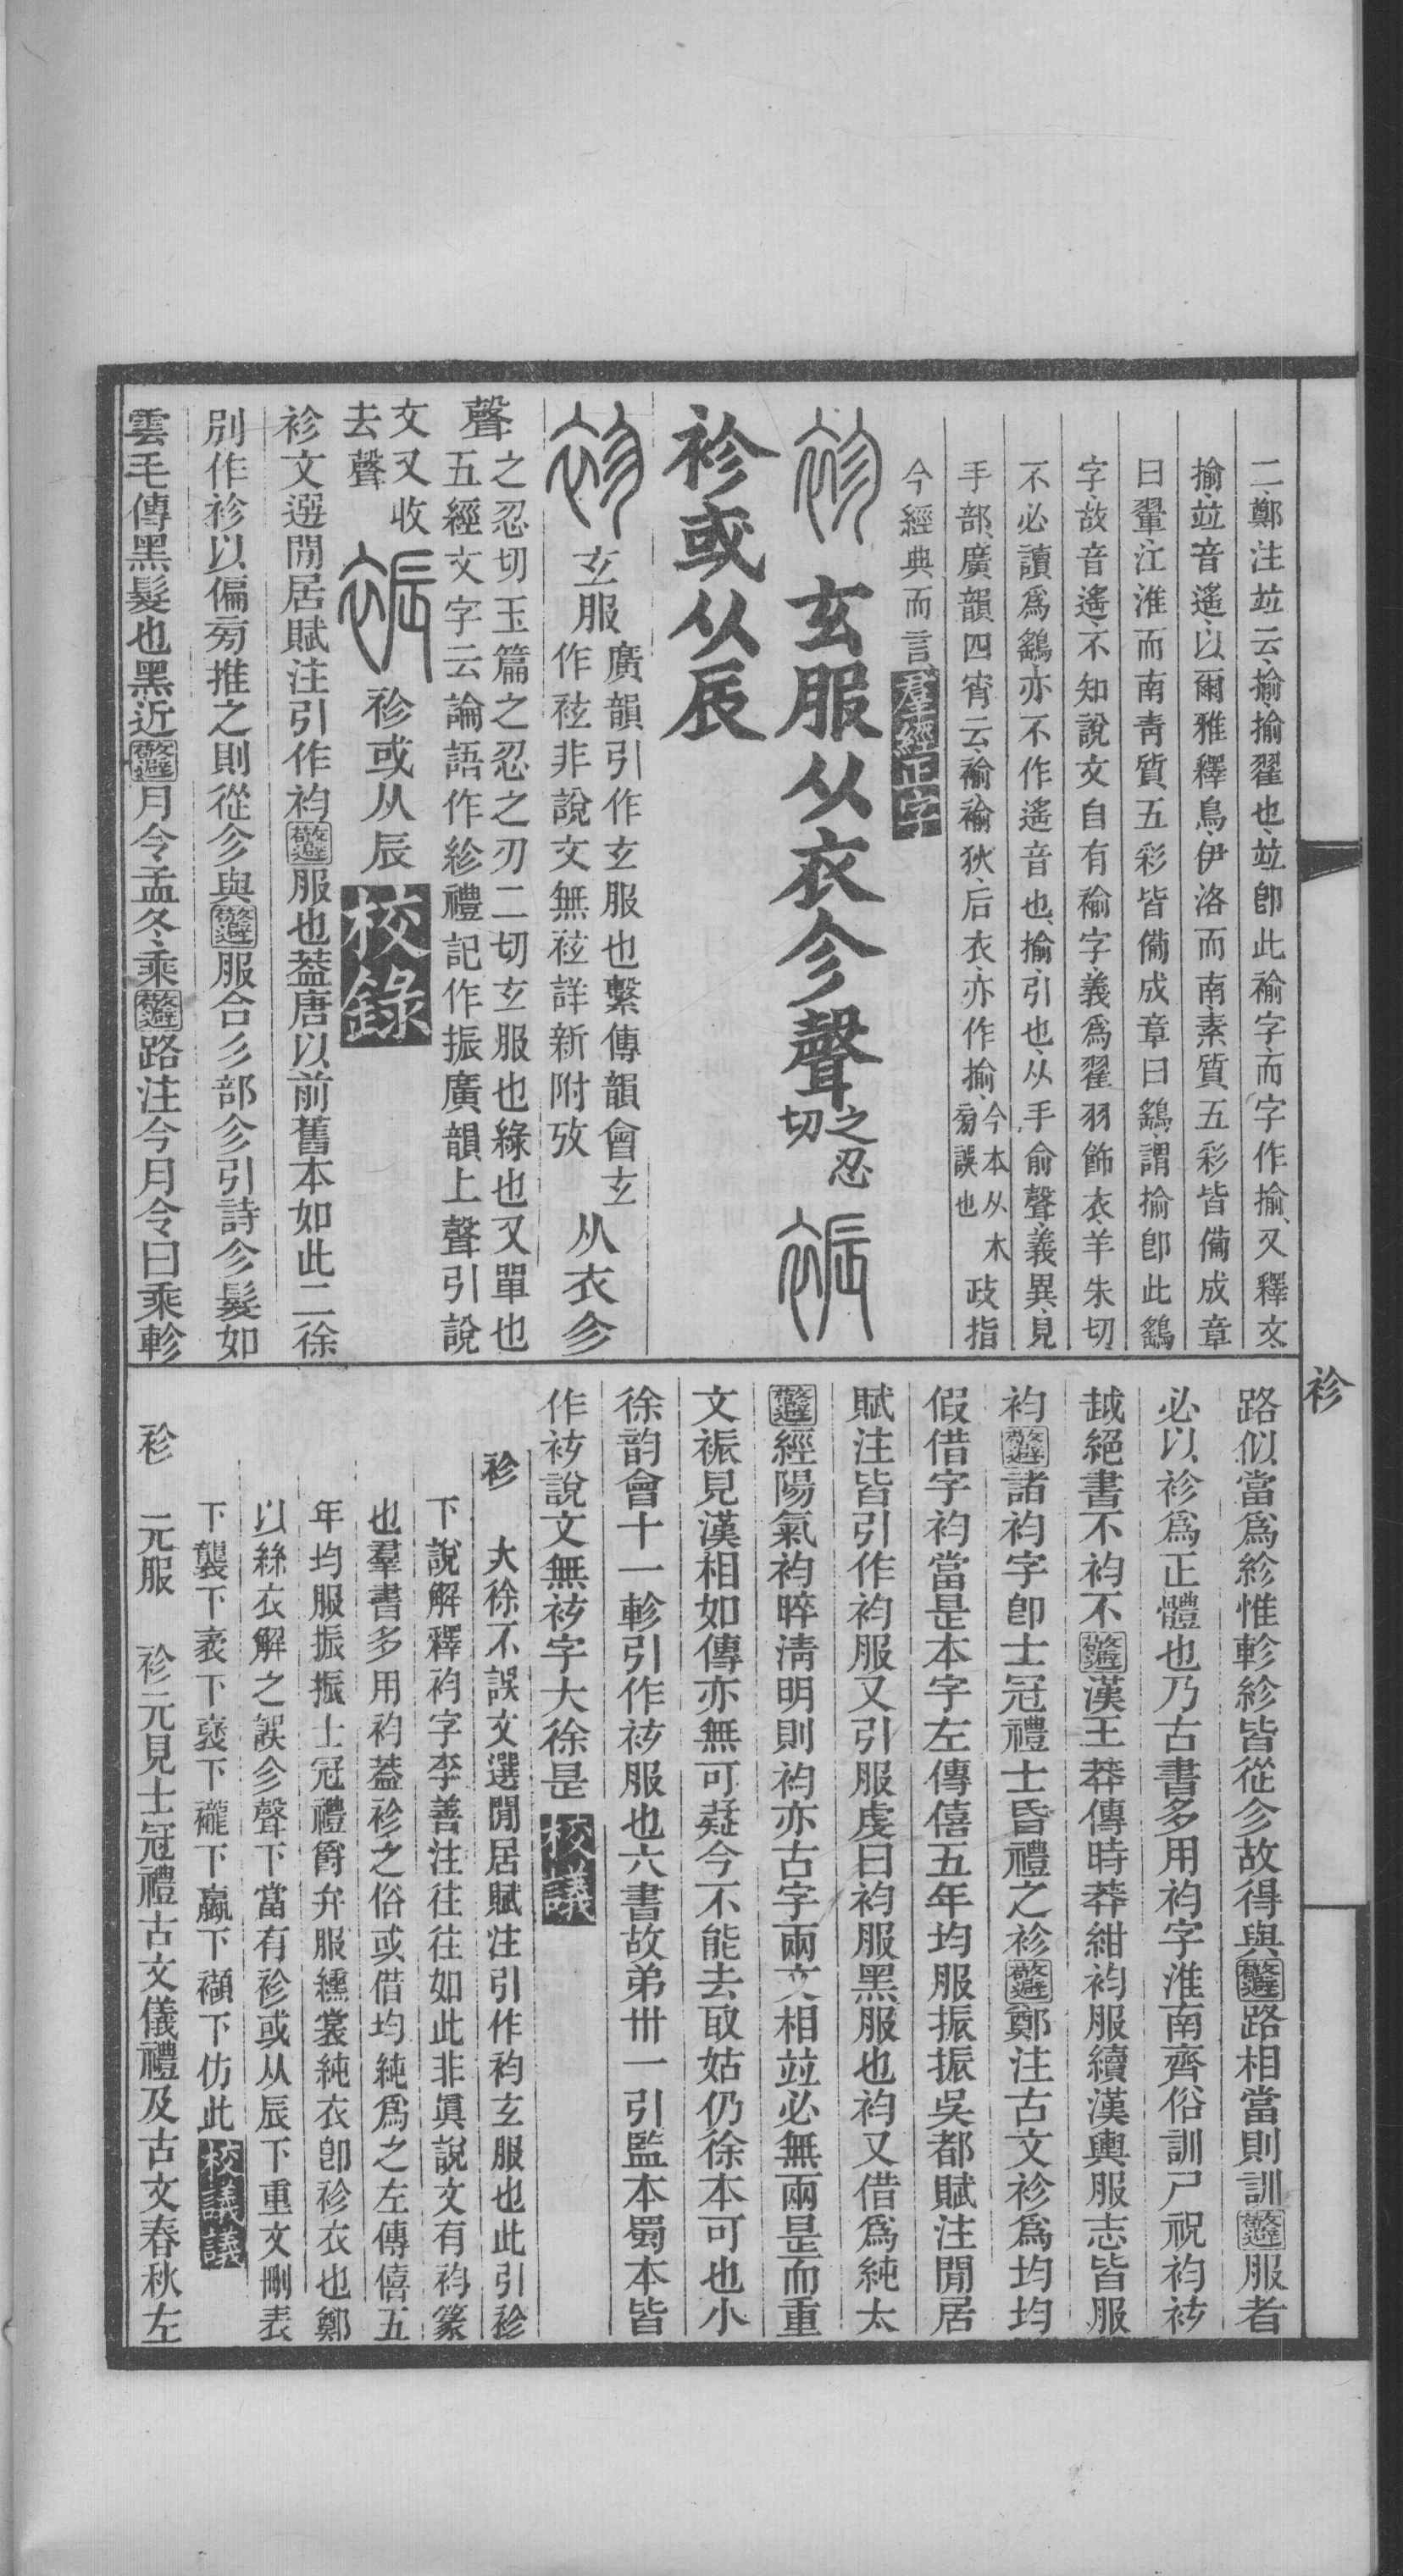 二鄭注竝云揄揄翟也竝卽此褕字而字作揄又釋文
揄竝音遙以爾雅釋鳥伊洛而南素質五彩皆備成章
曰翬江淮而南靑質五彩皆備成章曰鷂謂揄卽此鷂
字故音遙不知說文自有褕字義爲翟羽飾衣羊朱切
不必讀爲鷂亦不作遙音也揄引也从手俞聲義異見
手部廣韻四宵云褕褕狄后衣亦作揄今本从木㫄誤也歧指
今經典而言羣經正字
袗玄服从衣㐱聲之忍切裖
袗或从辰
袗玄服廣韻引作玄服也繫傳韻會玄作袨非說文無袨詳新附攷从衣㐱
聲之忍切玉篇之忍之刃二切玄服也緣也又單也五經文字云論語作紾禮記作振廣韻上聲引說
文又收去聲裖袗或从辰校錄
袗文選閒居賦注引作袀敬避服也葢唐以前舊本如此二徐
別作袗以偏㫄推之則從㐱與敬避服合彡部㐱引詩㐱髮如
雲毛傳黑髮也黑近敬避月令孟冬乘敬避路注今月令曰乘軫
袗
路似當爲紾惟軫紾皆從㐱故得與敬避路相當則訓敬避服者
必以袗爲正體也乃古書多用袀字淮南齊俗訓尸祝袀袨
越絕書不袀不敬避漢王莽傳時莽紺袀服續漢輿服志皆服
袀敬避諸袀字卽士冠禮士昏禮之袗敬避鄭注古文袗爲均均
假借字袀當是本字左傳僖五年均服振振吳都賦注閒居
賦注皆引作袀服又引服虔曰袀服黑服也袀又借爲純太
敬避經陽氣袀睟淸明則袀亦古字兩文相竝必無兩是而重
文裖見漢相如傳亦無可疑今不能去取姑仍徐本可也小
徐韵會十一軫引作袨服也六書故弟卅一引監本蜀本皆
作袨說文無袨字大徐是校議
袗　大徐不誤文選閒居賦注引作袀玄服也此引袗
下說解釋袀字李善注往往如此非眞說文有袀篆
也羣書多用袀葢袗之俗或借均純爲之左傳僖五
年均服振振士冠禮爵弁服纁裳純衣卽袗衣也鄭
以絲衣解之誤㐱聲下當有袗或从辰下重文刪表
下襲下袤下褎下襱下臝下襭下仿此校議議
袗　元服　袗元見士冠禮古文儀禮及古文春秋左